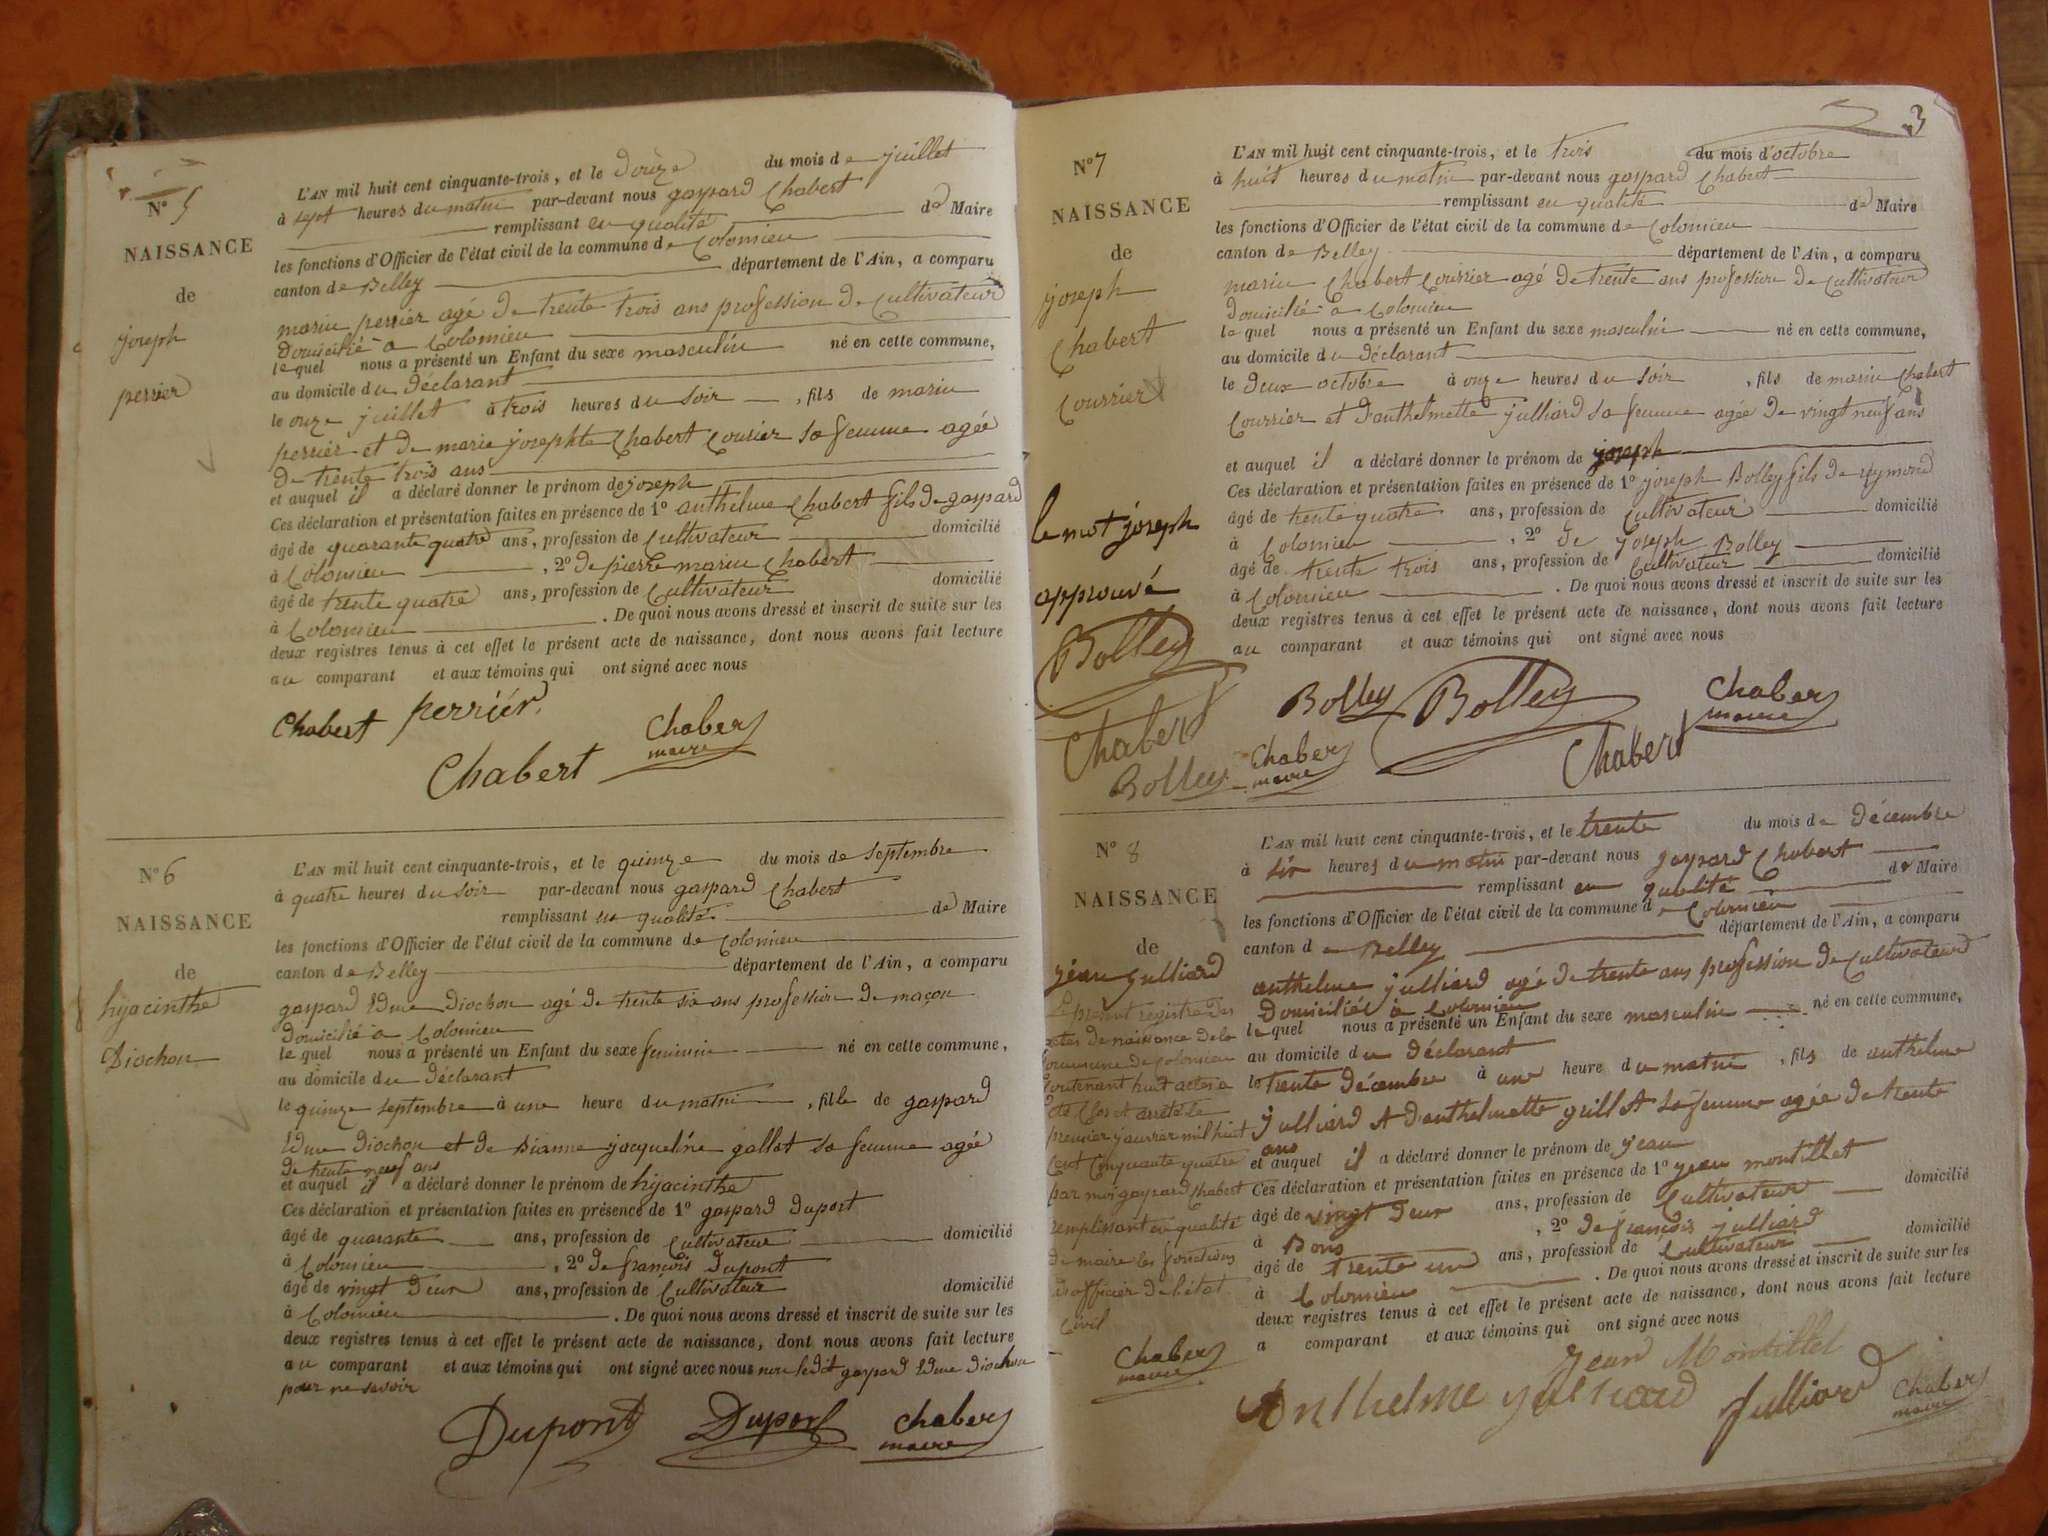 N° 5
NAISSANCE
de
joseph
perrier
L'AN mil huit cent cinquante-trois, et le douze du mois de juillet
à sept heures du matin par-devant nous gaspard Chabert
remplissant en qualité de Maire
les fonctions d'Officier de l'état civil de la commune de Colomieu
canton de Belley département de l'Ain, a comparu
marin perrier agé de trente trois ans profession de Cultivateur
domicilié a Colomieu
lequel nous a présenté un Enfant du sexe masculin né en cette commune,
au domicile du déclarant
le onze juillet à trois heures du soir, fils de marin
perrier et de marie josephte Chabert Courier sa femme agée
de trente trois ans
et auquel il a déclaré donner le prénom de joseph
Ces déclaration et présentation faites en présence de 1° anthelme Chabert fils de gaspard
âgé de quarante quatre ans, profession de Cultivateur domicilié
à Colomieu, 2° de pierre marin Chabert
âgé de trente quatre ans, profession de Cultivateur domicilié
à Colomieu. De quoi nous avons dressé et inscrit de suite sur les
deux registres tenus à cet effet le présent acte de naissance, dont nous avons fait lecture
au comparant et aux témoins qui ont signé avec nous
Chabert perrier
Chabert Chabert
maire
N° 6
NAISSANCE
de
hijacinthe
Diochon
L'AN mil huit cent cinquante-trois, et le quinze du mois de septembre
à quatre heures du soir par-devant nous gaspard Chabert
remplissant en qualité de Maire
les fonctions d'Officier de l'état civil de la commune de Colomieu
canton de Belley département de l'Ain, a comparu
gaspard Edme Diochon agé de trente six ans profession de maçon
domicilié a Colomieu
lequel nous a présenté un Enfant du sexe feminin né en cette commune,
au domicile du déclarant
le quinze septembre à une heure du matin, fille de gaspard
Edme Diochon et de Dianne jacqueline gallet sa femme agée
de trente neuf ans
et auquel il a déclaré donner le prénom de hijacinthe
Ces déclaration et présentation faites en présence de 1° gaspard duport
âgé de quarante ans, profession de Cultivateur domicilié
à Colomieu, 2° de françois dupont
âgé de vingt deux ans, profession de Cultivateur domicilié
à Colomieu. De quoi nous avons dressé et inscrit de suite sur les
deux registres tenus à cet effet le présent acte de naissance, dont nous avons fait lecture
au comparant et aux témoins qui ont signé avec nous non ledit gaspard Edme Diochon
pour ne savoir
Dupont Duport Chabert
maire
3
N° 7
NAISSANCE
de
joseph
Chabert
Courrier
le mot joseph
approuvé
Bolley
Chabert
Bolley Chabert
maire
L'AN mil huit cent cinquante-trois, et le trois du mois d'octobre
à huit heures du matin par-devant nous gaspard Chabert
remplissant en qualité de Maire
les fonctions d'Officier de l'état civil de la commune de Colomieu
canton de Belley département de l'Ain, a comparu
marin Chabert Courrier agé de trente ans profession de Cultivateur
domicilié a Colomieu
lequel nous a présenté un Enfant du sexe masculin né en cette commune,
au domicile du déclarant
le deux octobre à onze heures du soir, fils de marin Chabert
Courrier et d'anthelmette julliard sa femme agée de vingt neuf ans
et auquel il a déclaré donner le prénom de joseph
Ces déclaration et présentation faites en présence de 1° joseph Bolley fils de reymond
âgé de trente quatre ans, profession de Cultivateur domicilié
à Colomieu, 2° de joseph Bolley
âgé de trente trois ans, profession de Cultivateur domicilié
à Colomieu. De quoi nous avons dressé et inscrit de suite sur les
deux registres tenus à cet effet le présent acte de naissance, dont nous avons fait lecture
au comparant et aux témoins qui ont signé avec nous
Bolley Bolley Chabert
maire
Chabert
N° 8
NAISSANCE
de
jean julliard
Le présent registre des
actes de naissance de la
Commune de Colomieu
Contenant huit actes a
été Clos et arrêté le
premier janvier mil huit
Cent Cinquante quatre
par moi gaspard Chabert
remplissant en qualité
de maire les fonctions
d'officier de l'état
Civil
Chabert
maire
L'AN mil huit cent cinquante-trois, et le trente du mois de décembre
à six heures du matin par-devant nous gaspard Chabert
remplissant en qualité de Maire
les fonctions d'Officier de l'état civil de la commune de Colomieu
canton de Belley département de l'Ain, a comparu
anthelme julliard agé de trente ans profession de Cultivateur
domicilié à Colomieu
lequel nous a présenté un Enfant du sexe masculin né en cette commune,
au domicile du déclarant
le trente décembre à une heure du matin, fils de anthelme
julliard et d'anthelmette grillet sa femme agée de trente
ans
et auquel il a déclaré donner le prénom de jean
Ces déclaration et présentation faites en présence de 1° jean montillet
âgé de vingt deux ans, profession de Cultivateur domicilié
à Bons, 2° de françois julliard
âgé de trente un ans, profession de Cultivateur domicilié
à Colomieu. De quoi nous avons dressé et inscrit de suite sur les
deux registres tenus à cet effet le présent acte de naissance, dont nous avons fait lecture
a comparant et aux témoins qui ont signé avec nous
Jean Montillet
Anthelme julliard Julliard Chabert
maire